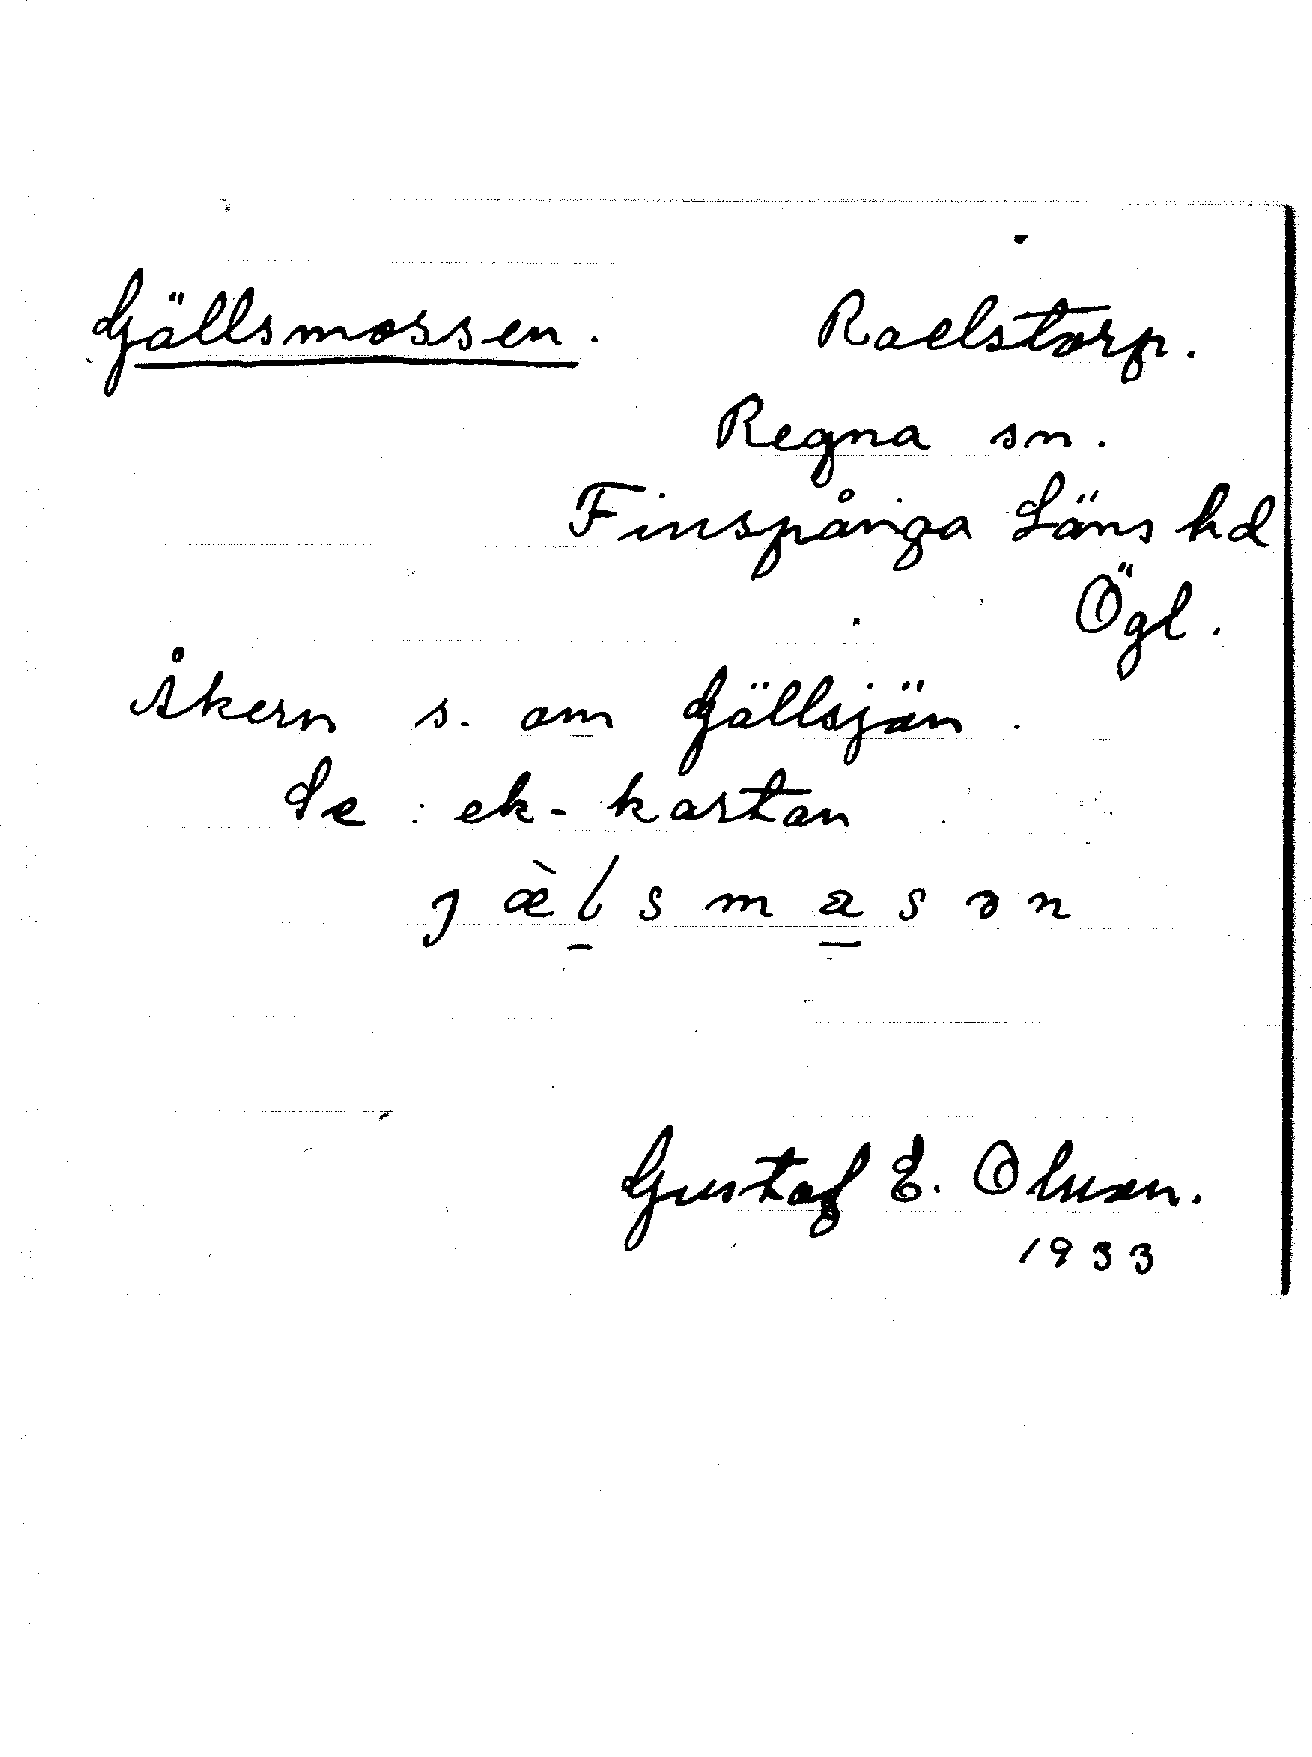 Gjällsmossen. Raelstorp.
Regna sn.
Finspånga Läns hd
Ögl.
Åkern s. om Gällsjön.
Se ek-kartan
jæ̀l̠sma̠sən
Gustaf E. Olsson.
1933